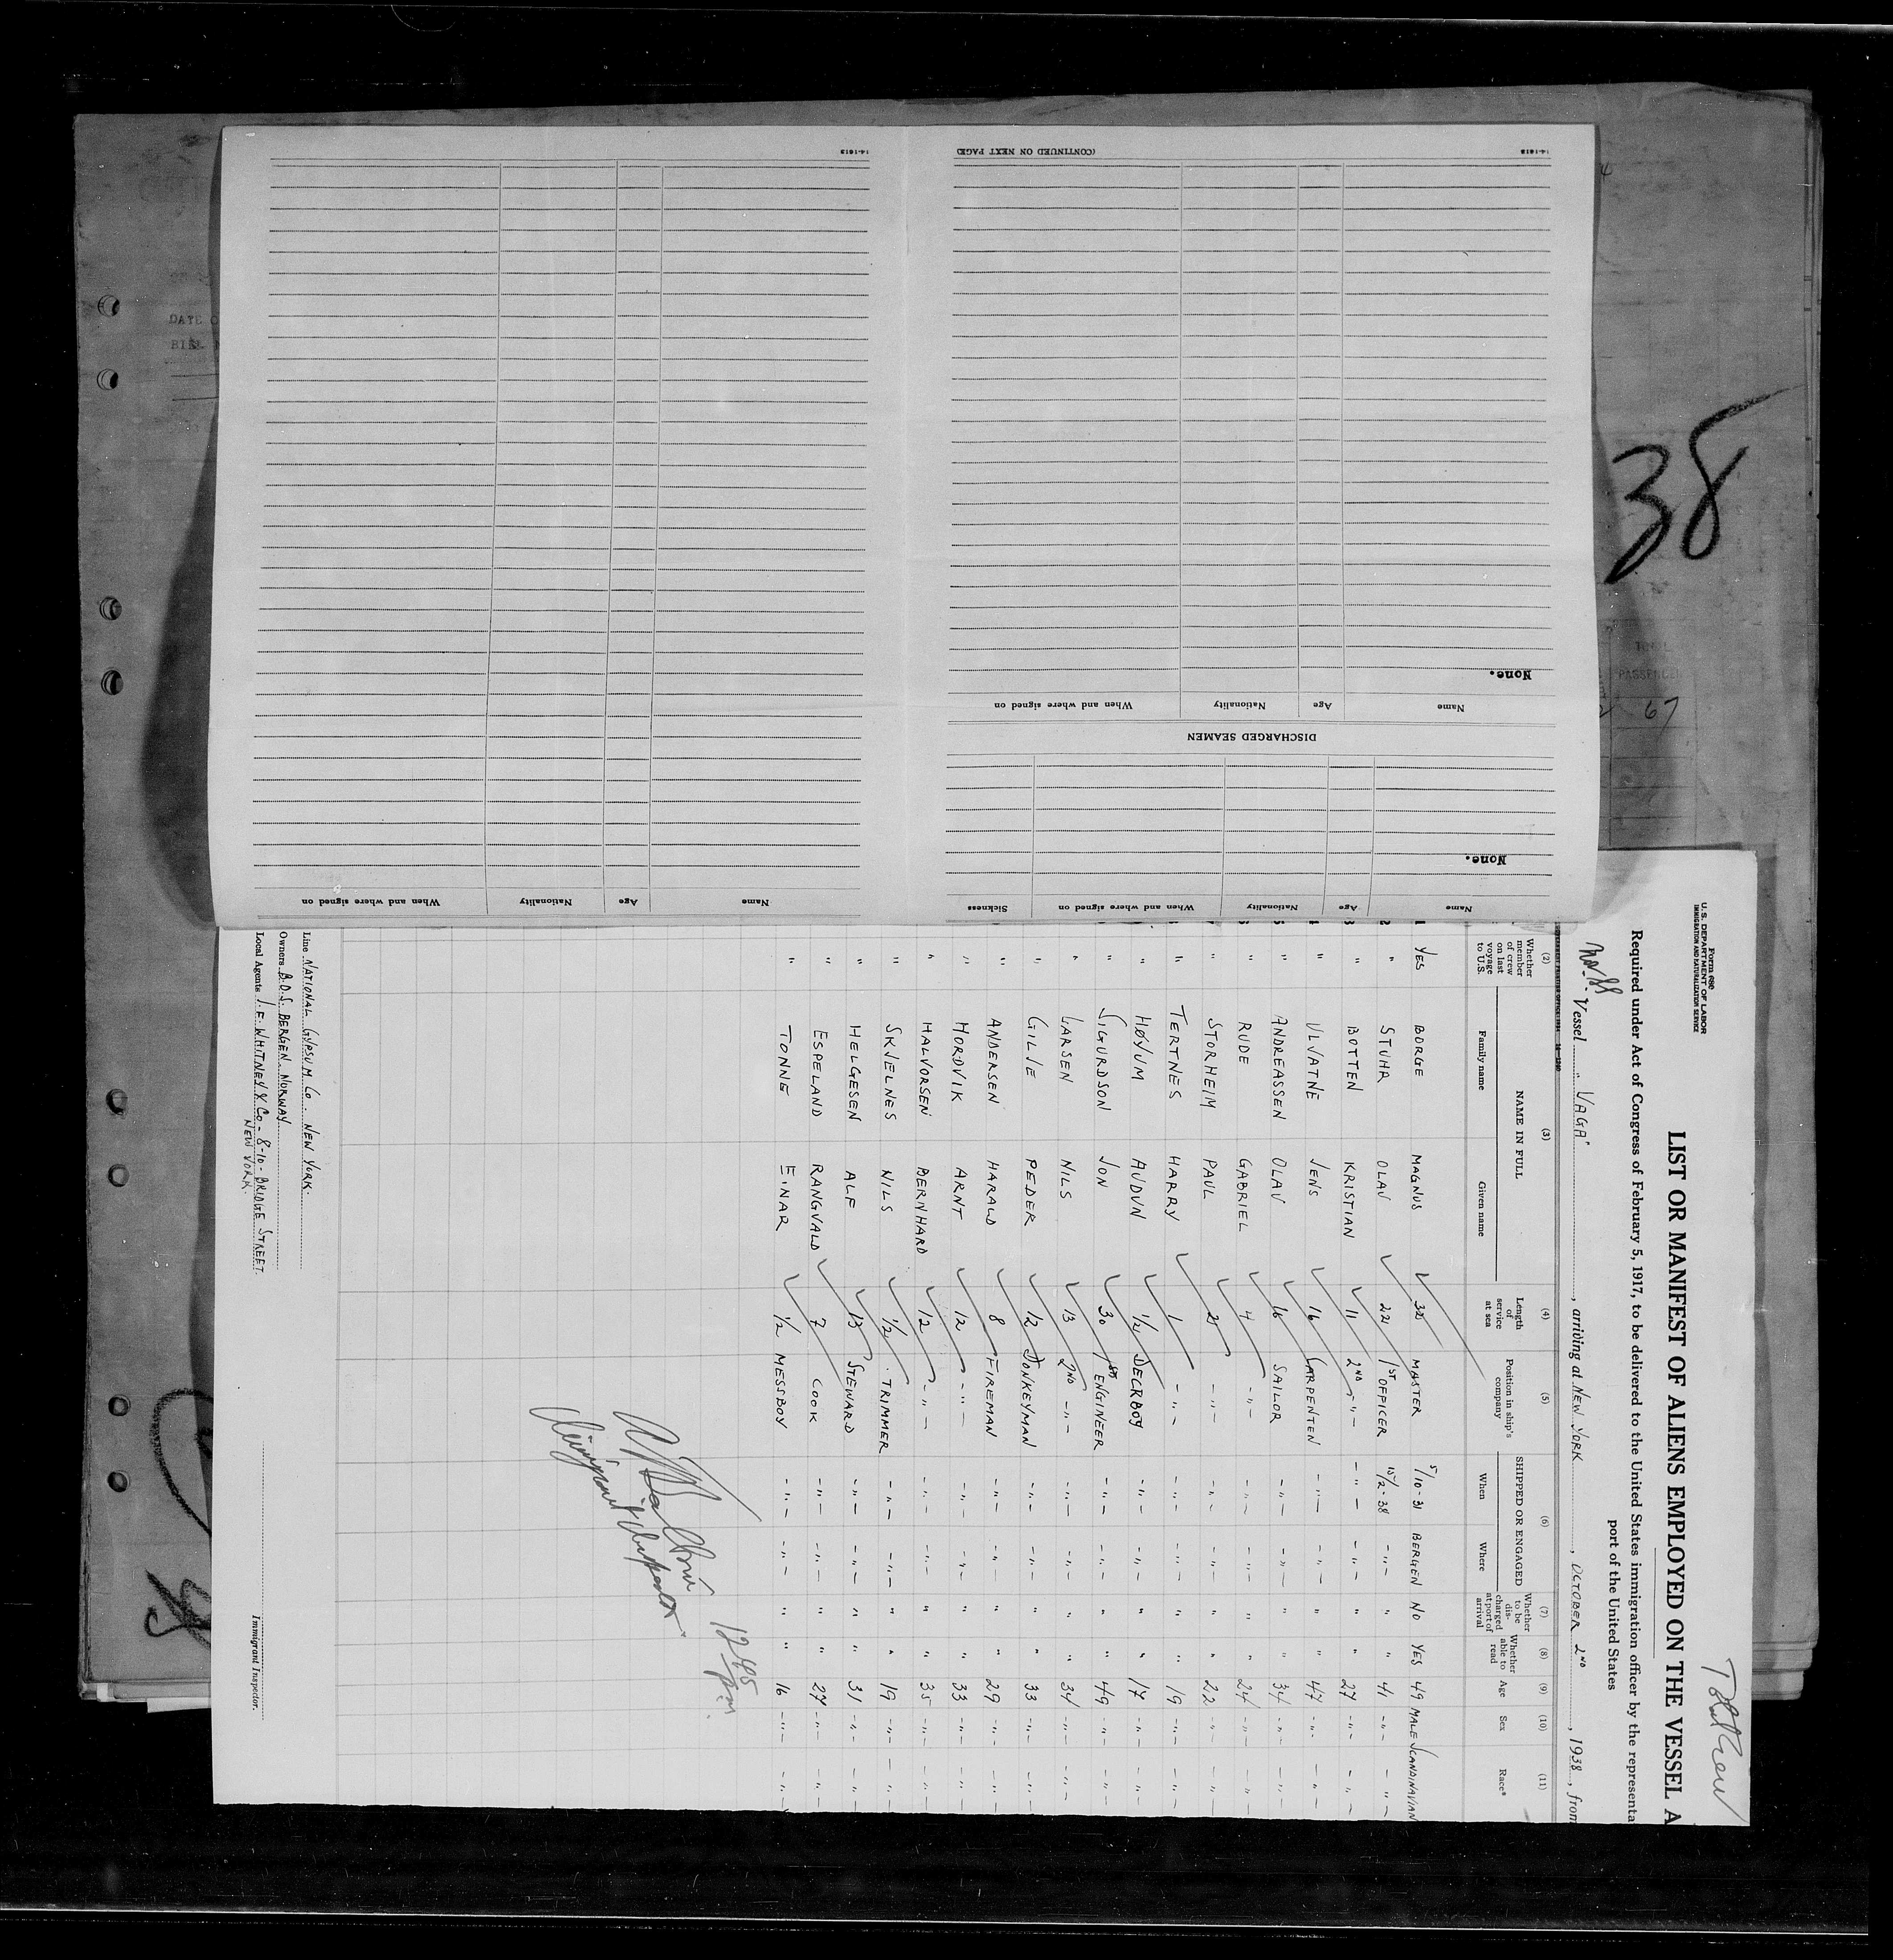 Form 680
U. S. DEPARTMENT OF LABOR
IMMIGRATION AND NATURALIZATION SERVICE
LIST OR MANIFEST OF ALIENS EMPLOYED ON THE VESSEL A
Required under Act of Congress of February 5, 1917, to be delivered to the United States immigration officer by the representa
port of the United States
Vessel " VAGA" , arriving at NEW YORK , OCTOBER 2ND , 1938 , from
(2) (3) (4) (5) (6) (7) (8) (9) (10) (11)
Whether member of crew on last voyage to U.S. NAME IN FULL Family name Given name Length of service at sea Position in ship's company SHIPPED OR ENGAGED When Where Whether to be discharged at port of arrival Whether able to read Age Sex Race*
1 YES BORGE MAGNUS 32 MASTER 5/10-31 BERGEN NO YES 49 MALE SCANDINAVIAN
2 " STUHR OLAV 22 1ST OFFICER 15/2-38 -"- " " 41 -"- -"-
3 " BOTTEN KRISTIAN 11 2ND -"- -"- -"- " " 27 -"- -"-
" ULVATNE JENS 16 CARPENTEN -"- -"- " " 47 -"- -"-
" ANDREASSEN OLAV 16 SAILOR -"- -"- " " 34 -"- -"-
" RUDE GABRIEL 4 -"- -"- -"- " " 24 -"- -"-
" STORHEIM PAUL 2 -"- -"- -"- " " 22 -"- -"-
" TERTNES HARRY 1 -"- -"- -"- " " 19 -"- -"-
" HØYUM AUDUN 1/2 DECKBOY -"- -"- " " 17 -"- -"-
" SIGURDSON JON 30 1ST ENGINEER -"- -"- " " 49 -"- -"-
" LARSEN NILS 13 2ND -"- -"- -"- " " 34 -"- -"-
" GILJE PEDER 12 DONKEYMAN -"- -"- " " 33 -"- -"-
" ANDERSEN HARALD 8 FIREMAN -"- -"- " " 29 -"- -"-
" HORDVIK ARNT 12 -"- -"- -"- " " 33 -"- -"-
" HALVORSEN BERNHARD 12 -"- -"- -"- " " 35 -"- -"-
" SKJELNES NILS 1/2 TRIMMER -"- -"- " " 19 -"- -"-
" HELGESEN ALF 13 STEWARD -"- -"- " " 31 -"- -"-
" ESPELAND RANGVALD 7 COOK -"- -"- " " 27 -"- -"-
" TONNE EINAR 1/2 MESSBOY -"- -"- " " 16 -"- -"-
1245 pm
Immigrant Inspector
Line NATIONAL GYPSUM CO. NEW YORK.
Owners B.D.S. BERGEN. NORWAY
Local Agents I. F. WHITNEY & CO - 8-10 - BRIDGE STREET.
NEW YORK.
Immigrant Inspector.
Name Age Nationality When and where signed on Sickness
None.
DISCHARGED SEAMEN
Name Age Nationality When and where signed on
None.
(CONTINUED ON NEXT PAGE)
14-1613
Name Age Nationality When and where signed on
14-1613
38
DATE O
BILL
PASSENGER
67